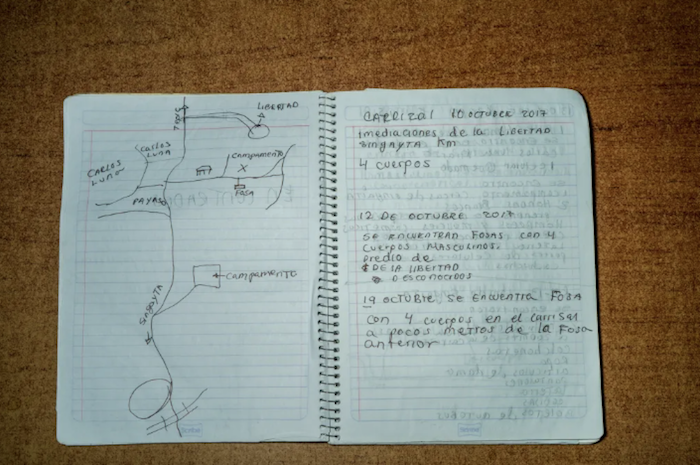 TEPIC
LIBERTAD
CARLOS
LUNA
CARLOS
LUNA
CAMPAMENTO
X
FOSA
PAYASO
CAMPAMENTO
SINGAYTA
CARRIZAL 10 OCTUBRE 2017
imediaciones de la LIBERTAD
SINGAYTA Km
4 CUERPOS
12 DE OCTUBRE 2017
SE ENCUENTRAN FOSAS CON 4
CUERPOS MASCULINOS.
PREDIO DE
DE LA LIBERTAD
DESCONOCIDOS
19 OCTUBRE SE ENCUENTRA FOSA
CON 4 CUERPOS EN EL CARRISAL
A POCOS METROS DE LA FOSA
ANTERIOR